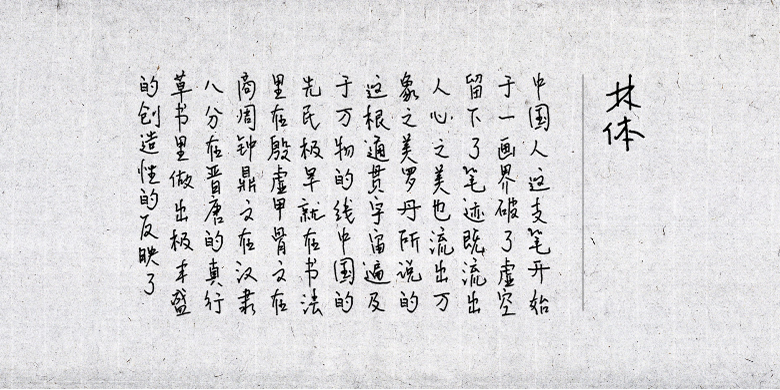 林体
中国人这支笔开始
于一画界破了虚空
留下了笔迹既流出
人心之美也流出万
象之美罗丹所说的
这根通贯宇宙遍及
于万物的线中国的
先民极早就在书法
里在殷虚甲骨文在
商周钟鼎文在汉隶
八分在晋唐的真行
草书里做出极丰盛
的创造性的反映了